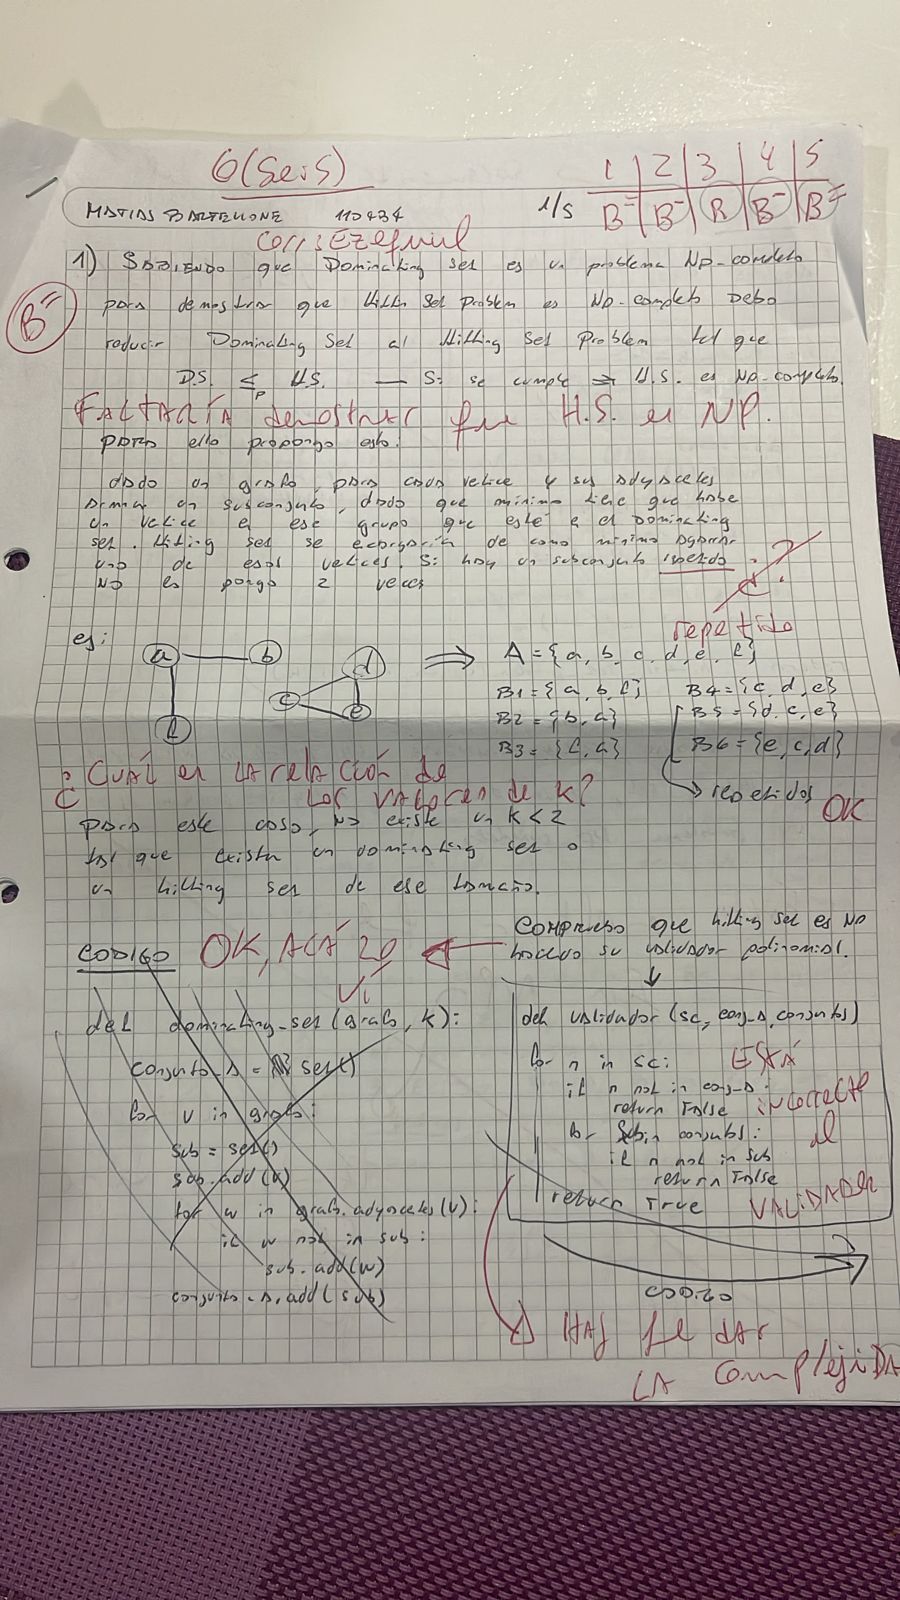 6 (Seis)
1 2 3 4 5
B- B- R B- B-
MATIAS BARTELLONE 110434 1/5
Corr: EZEQUIEL
1) SABIENDO que Dominating set es un problema NP-completo
B-
para demostrar que Hittin Set Problem es NP-completo Debo
reducir Dominating Set al Hitting Set Problem tal que
D.S. ≤p H.S. — Si se cumple ⇒ H.S. es NP-completo.
FALTARÍA demostrar que H.S. es NP.
para ello propongo esto:
dado un grafo, para cada vetice y sus adyacetes
armar un subconjuto, dado que minimo tiene que habe
un vetice e ese grupo que esté e el Dominating
set. Hitting set se ecargaría de como minimo agarrar
uno de esos vetices. Si hay un subconjuto ipetido
¿?
no es pongo 2 veces
repetido
ej:
a b d c e f ⇒ A = {a, b, c, d, e, f}
B1 = {a, b, f} B4 = {c, d, e}
B2 = {b, a} B5 = {d, c, e}
B3 = {f, a} B6 = {e, c, d}
¿Cuál es la relación de
los valores de k?
→ repetidos
OK
para este caso, no existe un k<2
tal que exista un dominating set o
un hitting set de ese tamaño.
COMPRUEBO que hitting set es NP
CODIGO OK, ACÁ LO
haciendo su validador polinomial.
Vi
def dominating_set (grafo, k):
conjunto_A = set()
for v in grafo:
sub = set()
sub.add(v)
for w in grafo.adyacetes(v):
if w not in sub:
sub.add(w)
conjunto_A.add(sub)
def validador (sc, conj_A, conjuntos)
for n in sc:
if n not in conj_A:
return False
for Sub in conjuntos:
if n not in sub
return False
return True
ESTÁ
incorrecto
el
VALIDADOR
CODIGO
HAY que DAR
LA complejiDA